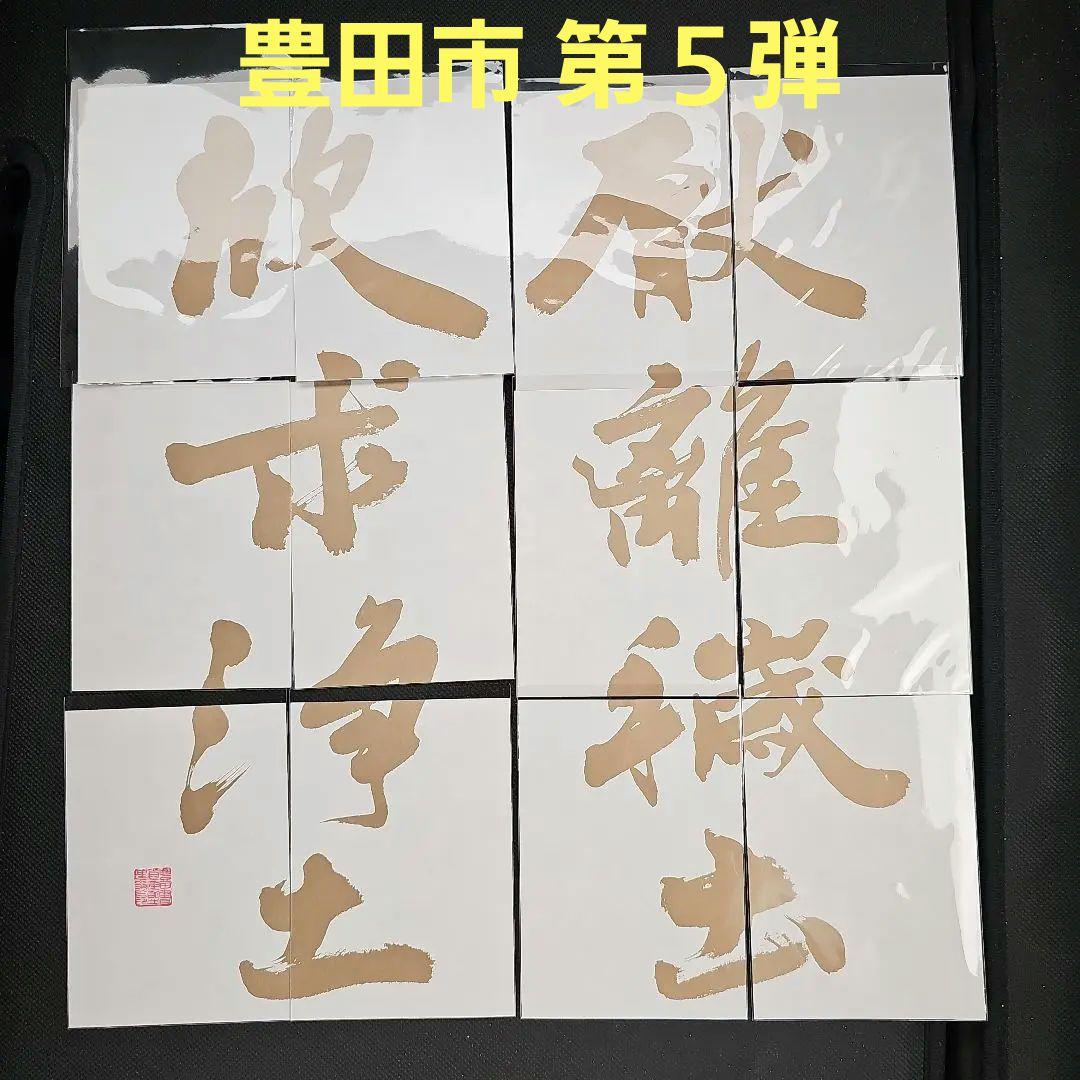 豊田市 第5弾
厭離穢土
欣求浄土